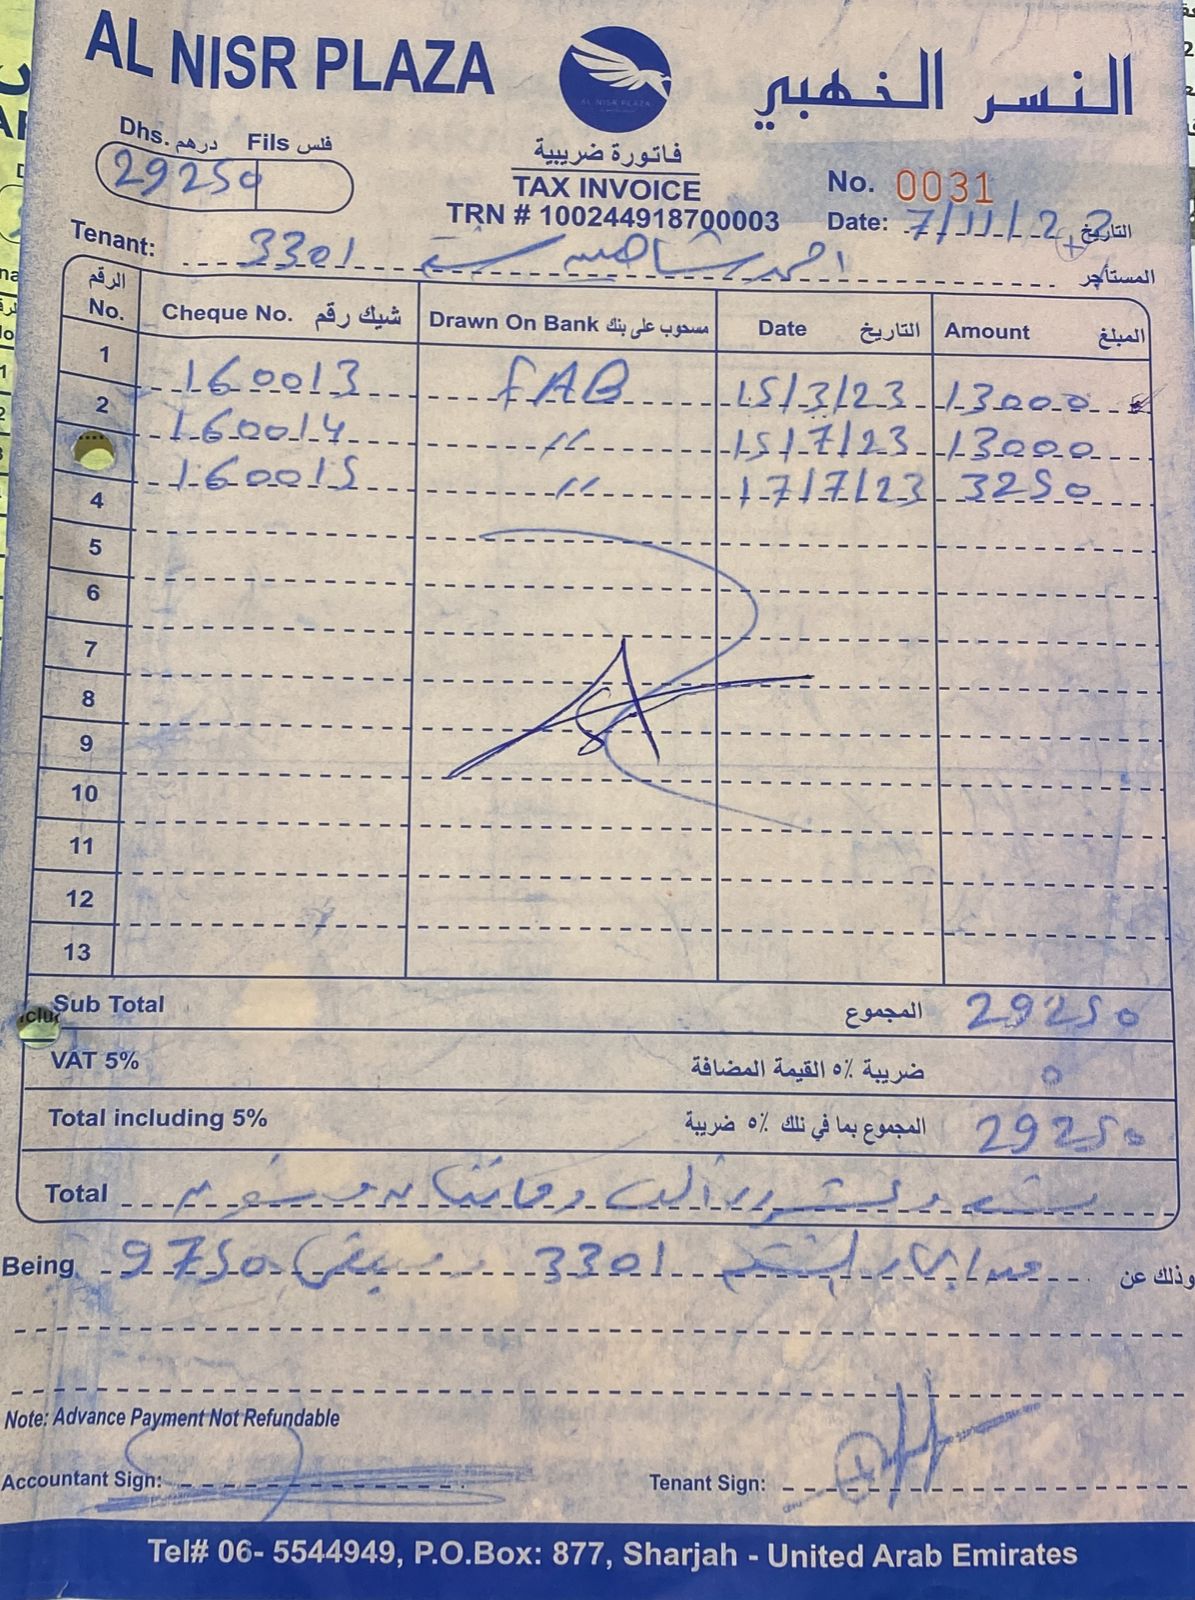 AL NISR PLAZA
النسر الذهبي
AL NISR PLAZA
Dhs. درهم Fils فلس
29250
فاتورة ضريبية
TAX INVOICE
TRN # 100244918700003
No. 0031
Date: 7/11/22 التاريخ
Tenant: 3301 احمد شاهين المستأجر
الرقم No. Cheque No. شيك رقم Drawn On Bank مسحوب على بنك Date التاريخ Amount المبلغ
1 160013 FAB 15/3/23 13000
2 160014 〃 15/7/23 13000
160015 〃 17/7/23 3250
4
5
6
7
8
9
10
11
12
13
Sub Total المجموع 29250
VAT 5% ضريبة ٥٪ القيمة المضافة 0
Total including 5% المجموع بما في تلك ٥٪ ضريبة 29250
Total تسعة وعشرون ألف ومائتان وخمسون
Being 3301 9750 وذلك عن
Note: Advance Payment Not Refundable
Accountant Sign:
Tenant Sign:
Tel# 06- 5544949, P.O.Box: 877, Sharjah - United Arab Emirates